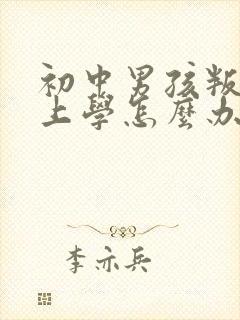 初中男孩叛
上學怎麼办
李亦兵